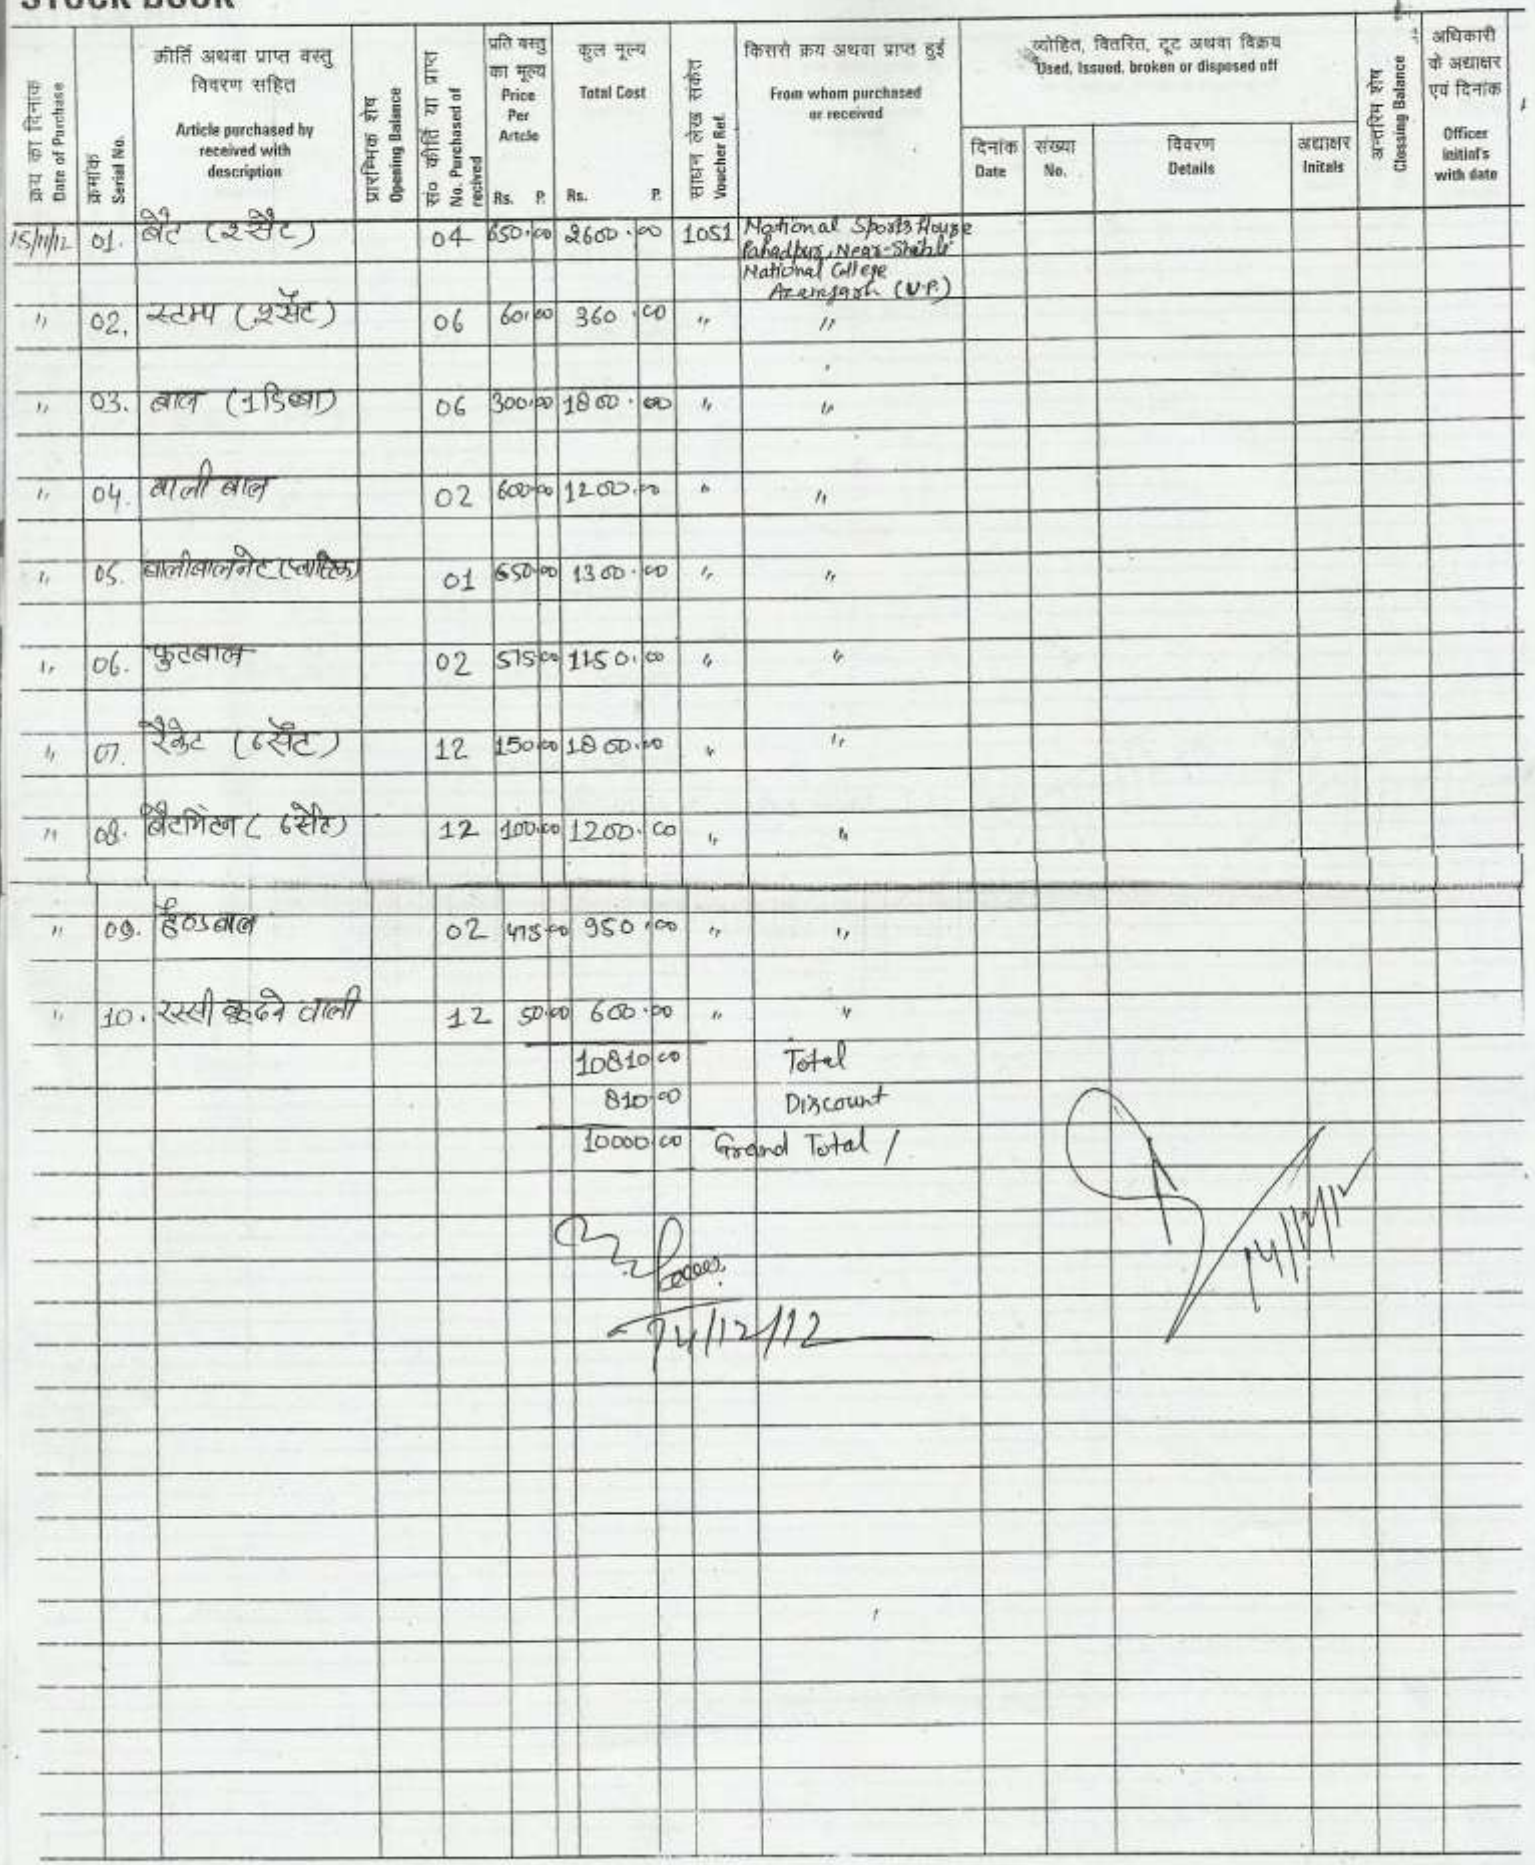 STOCK BOOK
क्रय का दिनांक Date of Purchase
क्रमांक Serial No.
क्रीर्ति अथवा प्राप्त वस्तु विवरण सहित Article purchased by received with description
प्रारम्भिक शेष Opening Balance
सं० कीर्ति या प्राप्त No. Purchased of recived
प्रति वस्तु का मूल्य Price Per Artcle Rs. P.
कुल मूल्य Total Cost Rs. P.
साधन लेख संकेत Voucher Ref.
किससे क्रय अथवा प्राप्त हुई From whom purchased or received
व्योहित, वितरित, टूट अथवा विक्रय Used, Issued, broken or disposed off
दिनांक Date
संख्या No.
विवरण Details
अद्याक्षर Initals
अन्तरिम शेष Clossing Balance
अधिकारी के अद्याक्षर एवं दिनांक Officer initial's with date
15/11/12 01. बैट (2 सैट) 04 650.00 2600.00 1051 National Sports House
Pahadpur, Near-Shibli
National College
Azamgarh (U.P.)
" 02. स्टम्प (2 सैट) 06 60.00 360.00 " "
" 03. बाल (1 डिब्बा) 06 300.00 1800.00 " "
" 04. बाली बाल 02 600.00 1200.00 " "
" 05. बालीबाल नेट (प्लास्टिक) 01 650.00 1300.00 " "
" 06. फुटबाल 02 575.00 1150.00 " "
" 07. रैकेट (6 सैट) 12 150.00 1800.00 " "
" 08. बैटमिंटन (6 सैट) 12 100.00 1200.00 " "
" 09. हैण्डबाल 02 475.00 950.00 " "
" 10. रस्सी कूदने वाली 12 50.00 600.00 " "
10810.00 Total
810.00 Discount
10000.00 Grand Total /
14/12/12
14/12/12